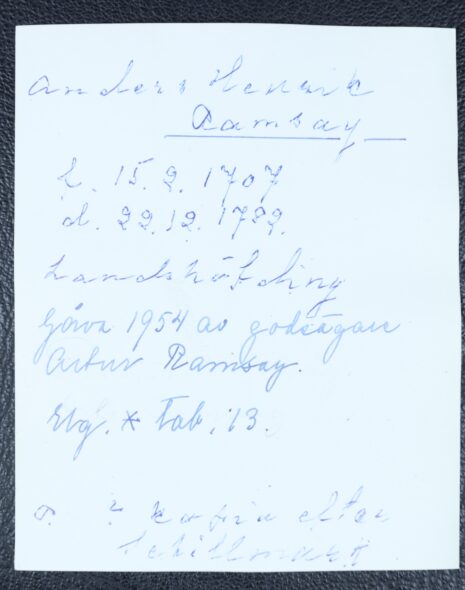 Anders Henrik
Ramsay
f. 15.2. 1707
d. 22.12. 1782.
Landshöfding
Gåva 1954 av godsägare
Artur Ramsay.
Elg. * Tab. 13.
? kopia efter
Schillmark